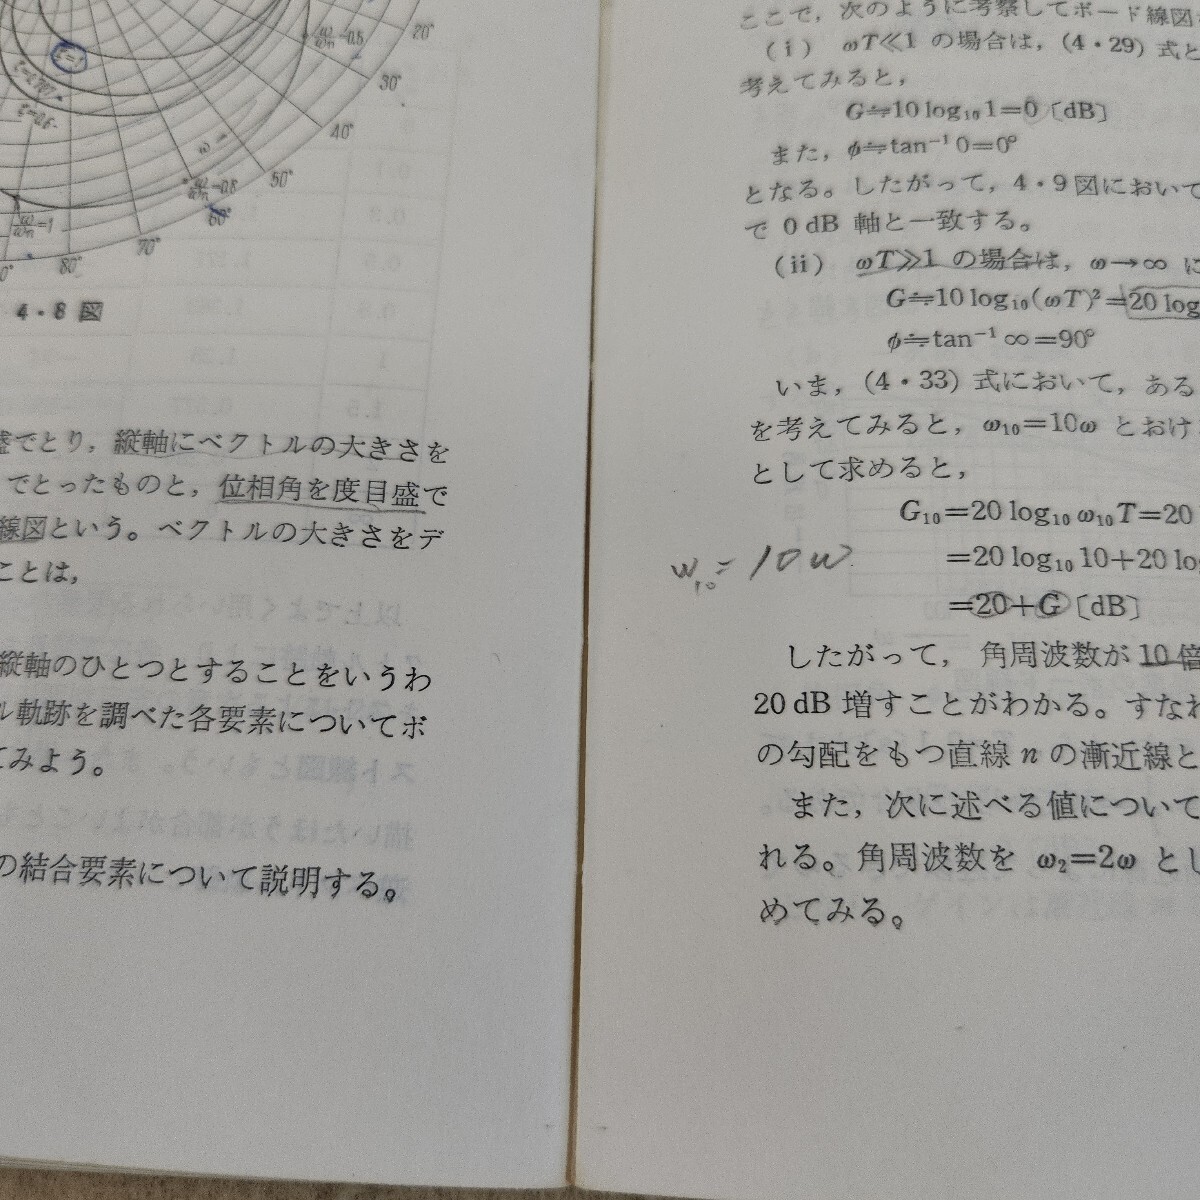 20°
30°
40°
50°
60°
70°
80°
ζ=1
ζ=0.707
ω
ω/ωn=0.8
ω/ωn=1
4・8 図
盛でとり，縦軸にベクトルの大きさを
でとったものと，位相角を度目盛で
線図という。ベクトルの大きさをデ
ことは，
縦軸のひとつとすることをいうわ
ル軌跡を調べた各要素についてボ
てみよう。
の結合要素について説明する。
ここで，次のように考察してボード線図
(ⅰ) ωT≪1 の場合は，(4・29) 式と
考えてみると，
G≒10 log₁₀ 1=0 〔dB〕
また，φ≒tan⁻¹ 0=0°
となる。したがって，4・9 図において
で 0 dB 軸と一致する。
(ⅱ) ωT≫1 の場合は，ω→∞ に
G≒10 log₁₀(ωT)²=20 log
φ≒tan⁻¹ ∞=90°
いま，(4・33) 式において，ある
を考えてみると，ω₁₀=10ω とおけ
として求めると，
G₁₀=20 log₁₀ ω₁₀T=20
=20 log₁₀ 10+20 log
w₁₀=10w
=20+G 〔dB〕
したがって，角周波数が 10 倍
20 dB 増すことがわかる。すなわ
の勾配をもつ直線 n の漸近線と
また，次に述べる値について
れる。角周波数を ω₂=2ω とし
めてみる。